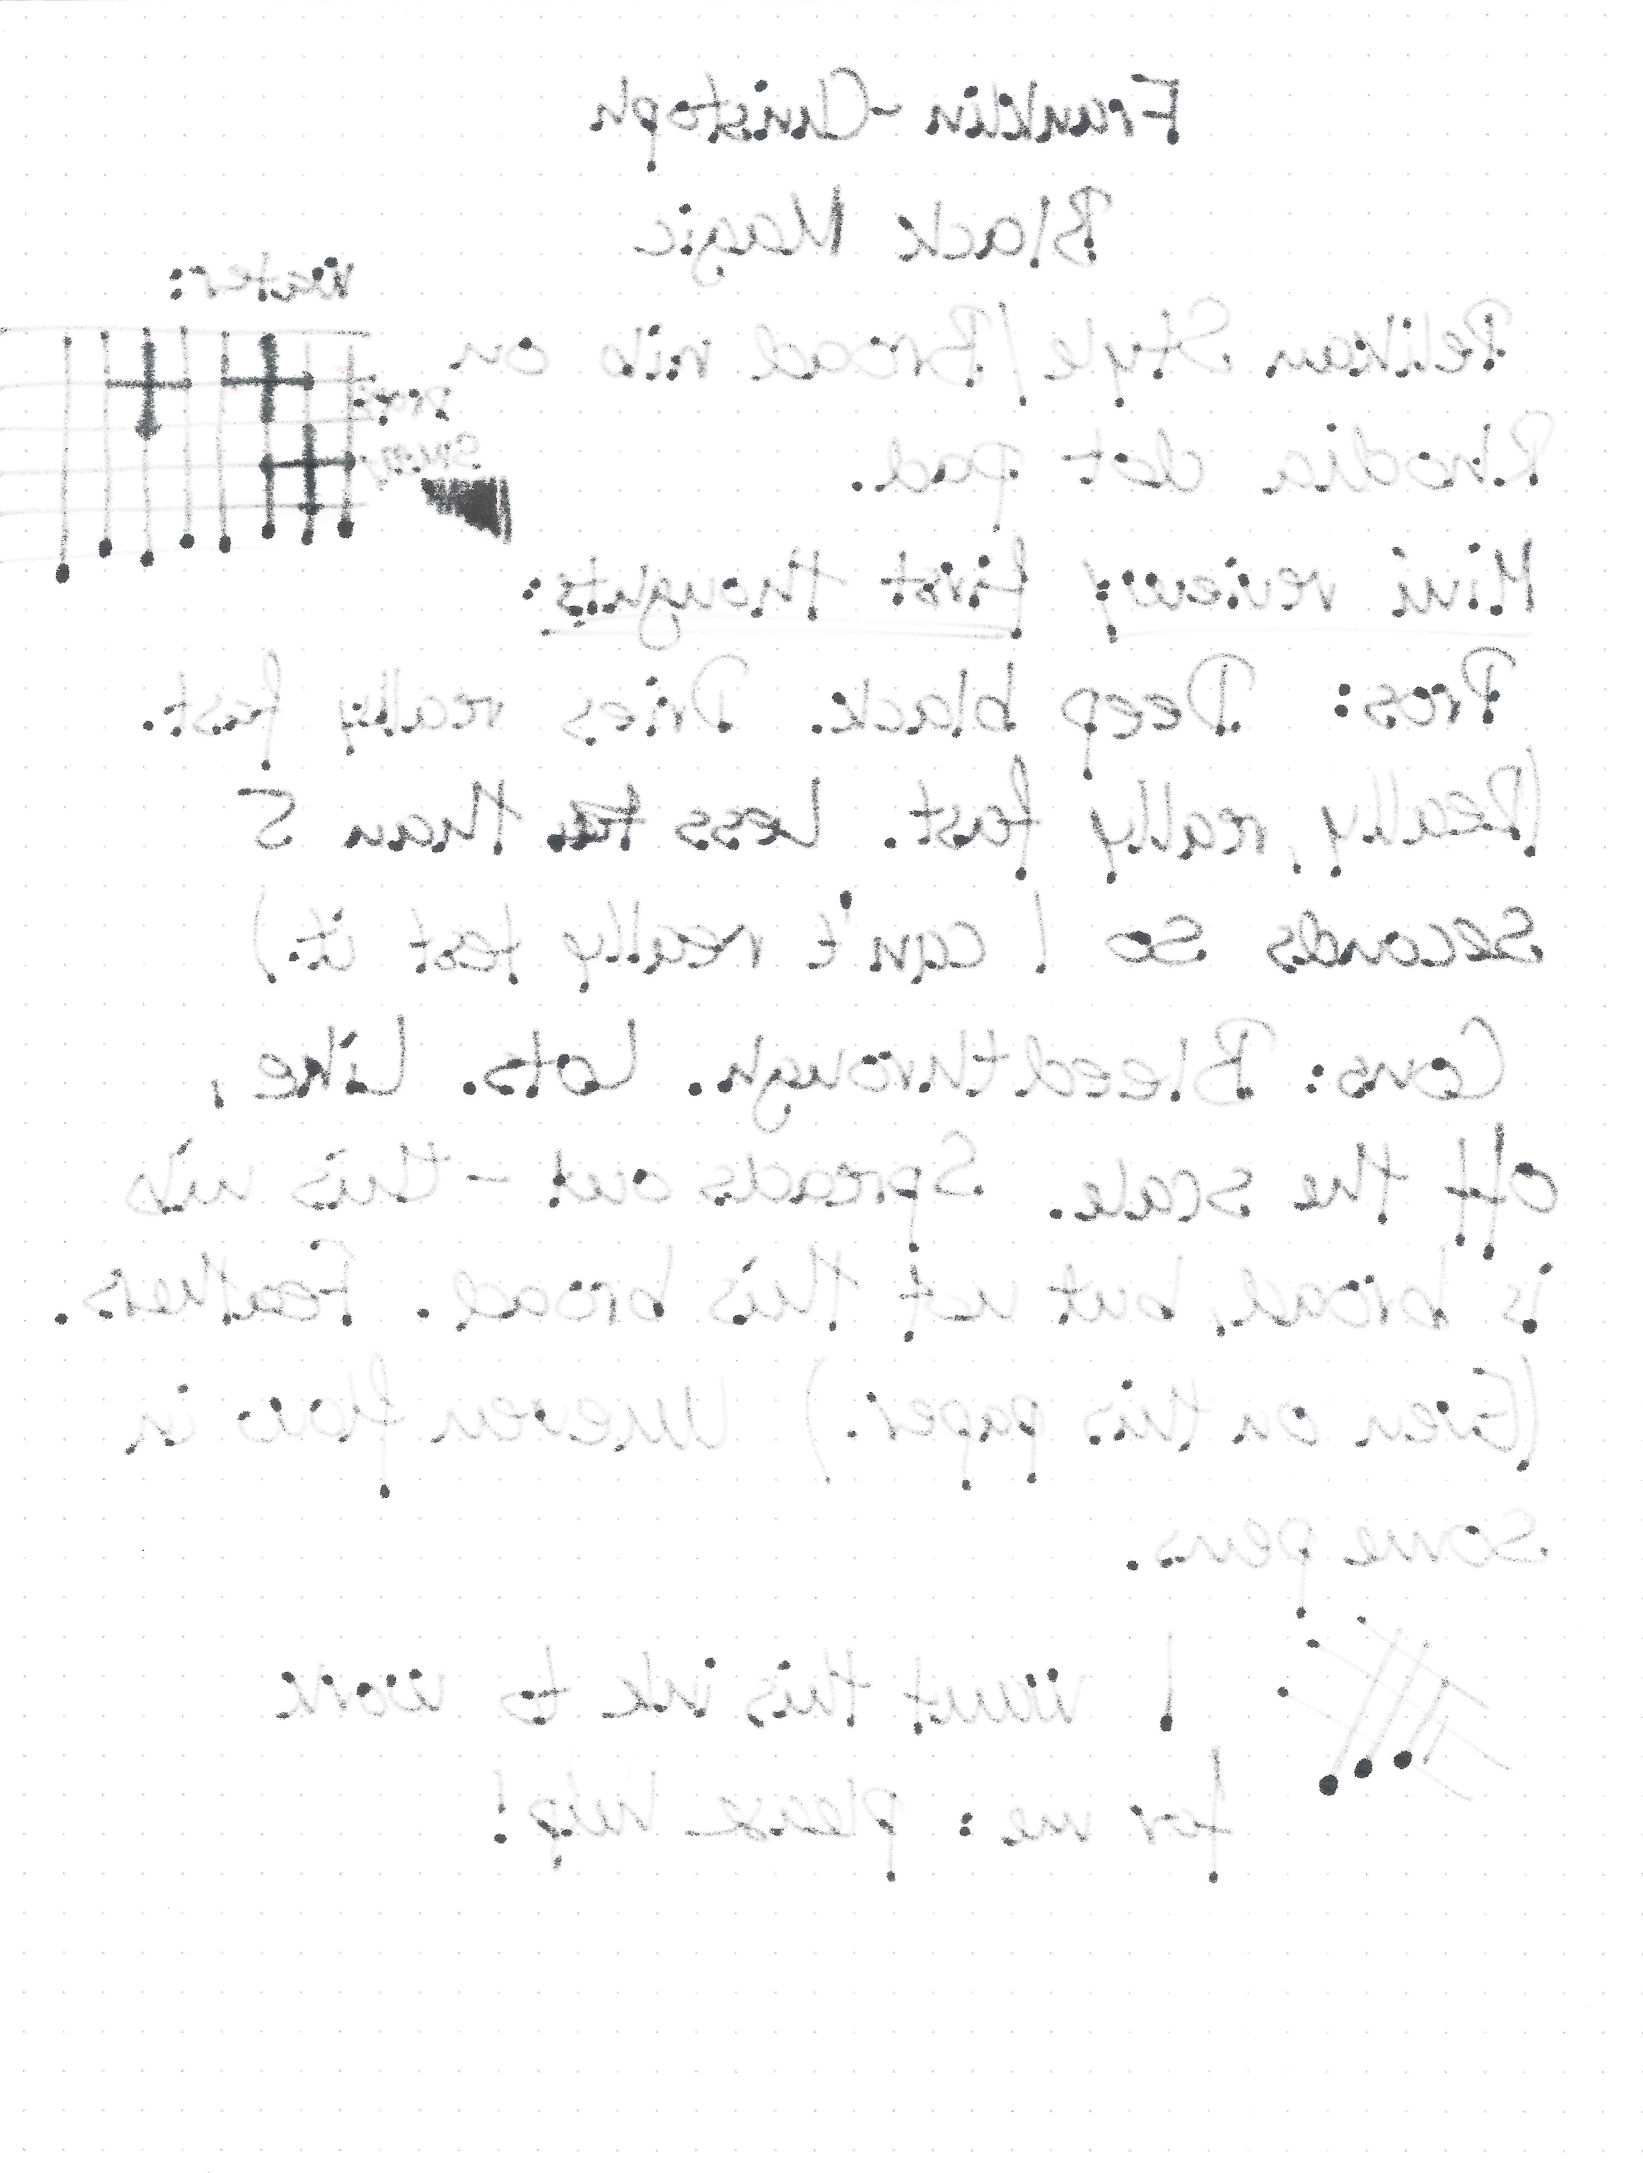 Franklin-Christoph
Black Magic
Water:
Pelikan Style/Broad nib on
Rhodia dot pad.
Mini review; first thoughts:
Pros: Deep black. Dries really fast.
(Really, really fast. Less than 5
seconds so I can't really test it)
Cons: Bleedthrough. Lots. Like,
off the scale. Spreads out - this nib
is broad, but not this broad. Feathers.
(Even on this paper.) Uneven flow in
some pens.
I want this ink to work
for me: please help!